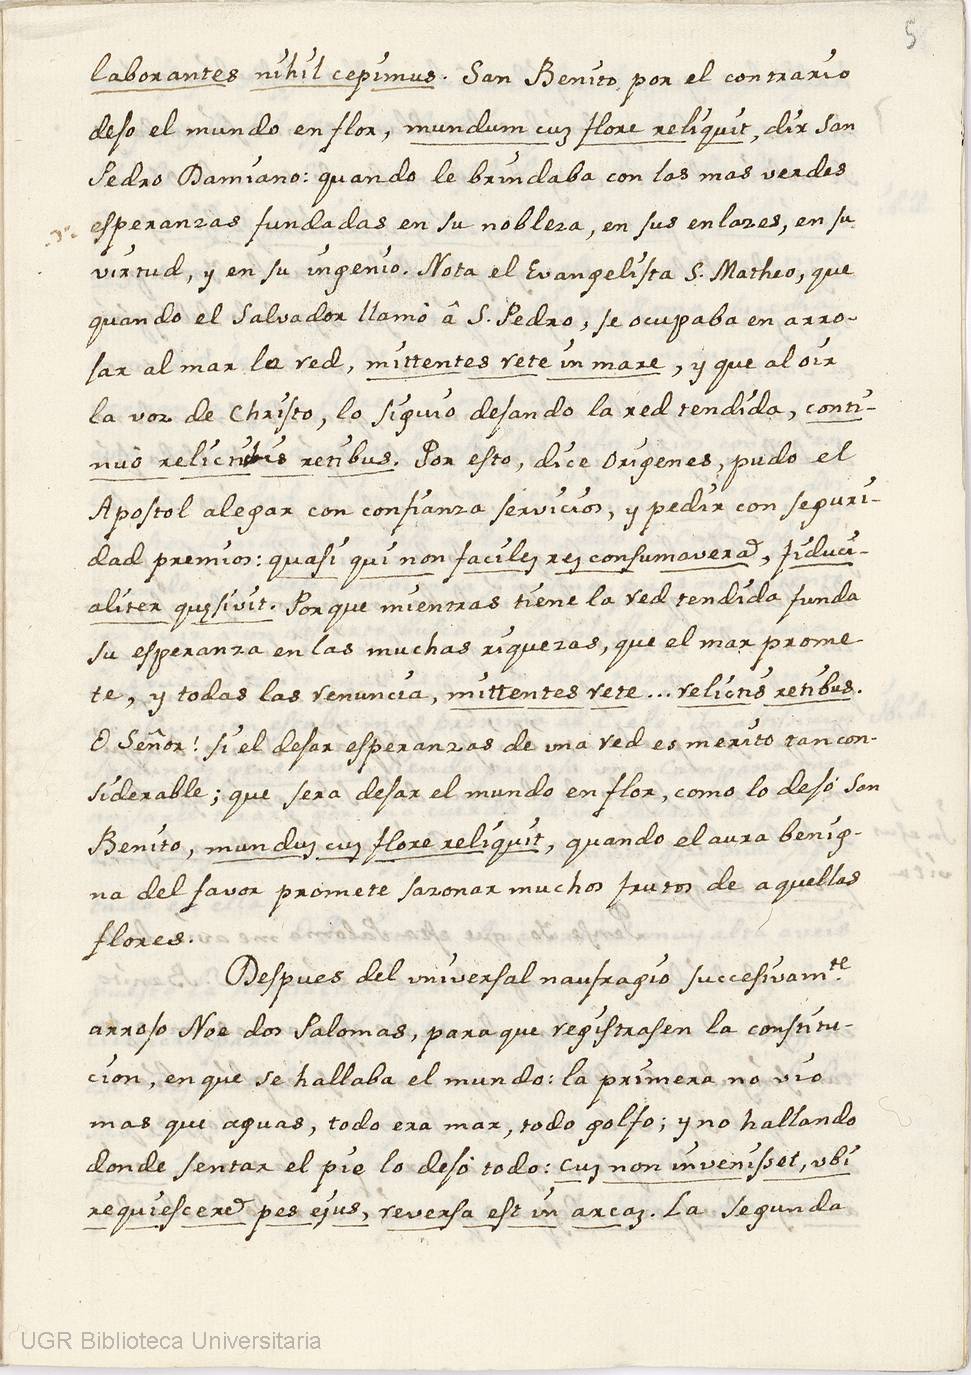 5
laborantes nihil cepimus. San Benito por el contrario
dejo el mundo en flor, mundum cuz flore reliquit, dix San
Pedro Damiano: quando le brindaba con las mas verdes
esperanzas fundadas en su nobleza, en sus enlazes, en su
virtud, y en su ingenio. Nota el Evangelista S. Matheo, que
quando el Salvador llamò â S. Pedro, se ocupaba en arro-
jar al mar la red, mittentes rete in mare, y que al oir
la voz de Christo, lo siguio dejando la red tendida, conti-
nuò relictibis retibus. Por esto, dice Origenes, pudo el
Apostol alegar con confianza servicios, y pedir con seguri-
dad premios: quasi qui non faciles rez consumaverat, fiduci-
aliter quęsivit. Porque mientras tiene la red tendida funda
su esperanza en las muchas riquezas, que el mar prome
te, y todas las renuncia, mittentes rete ... relictis retibus.
O Señor! si el dejar esperanzas de una red es merito tan con-
siderable; que sera dejar el mundo en flor, como lo dejó San
Benito, munduz cuz flore reliquit, quando el aura benig-
na del favor promete sazonar muchos frutos de aquellas
flores.
Despues del vniversal naufragio successivam.te
arrojo Noe dos Palomas, para que registrasen la constitu-
cion, en que se hallaba el mundo: la primera no vio
mas que aguas, todo era mar, todo golfo; y no hallando
donde sentar el pie lo dejó todo: cuz non invenisset, vbi
requiesceret pes ejus, reversa est in arcaz. La segunda
UGR Biblioteca Universitaria